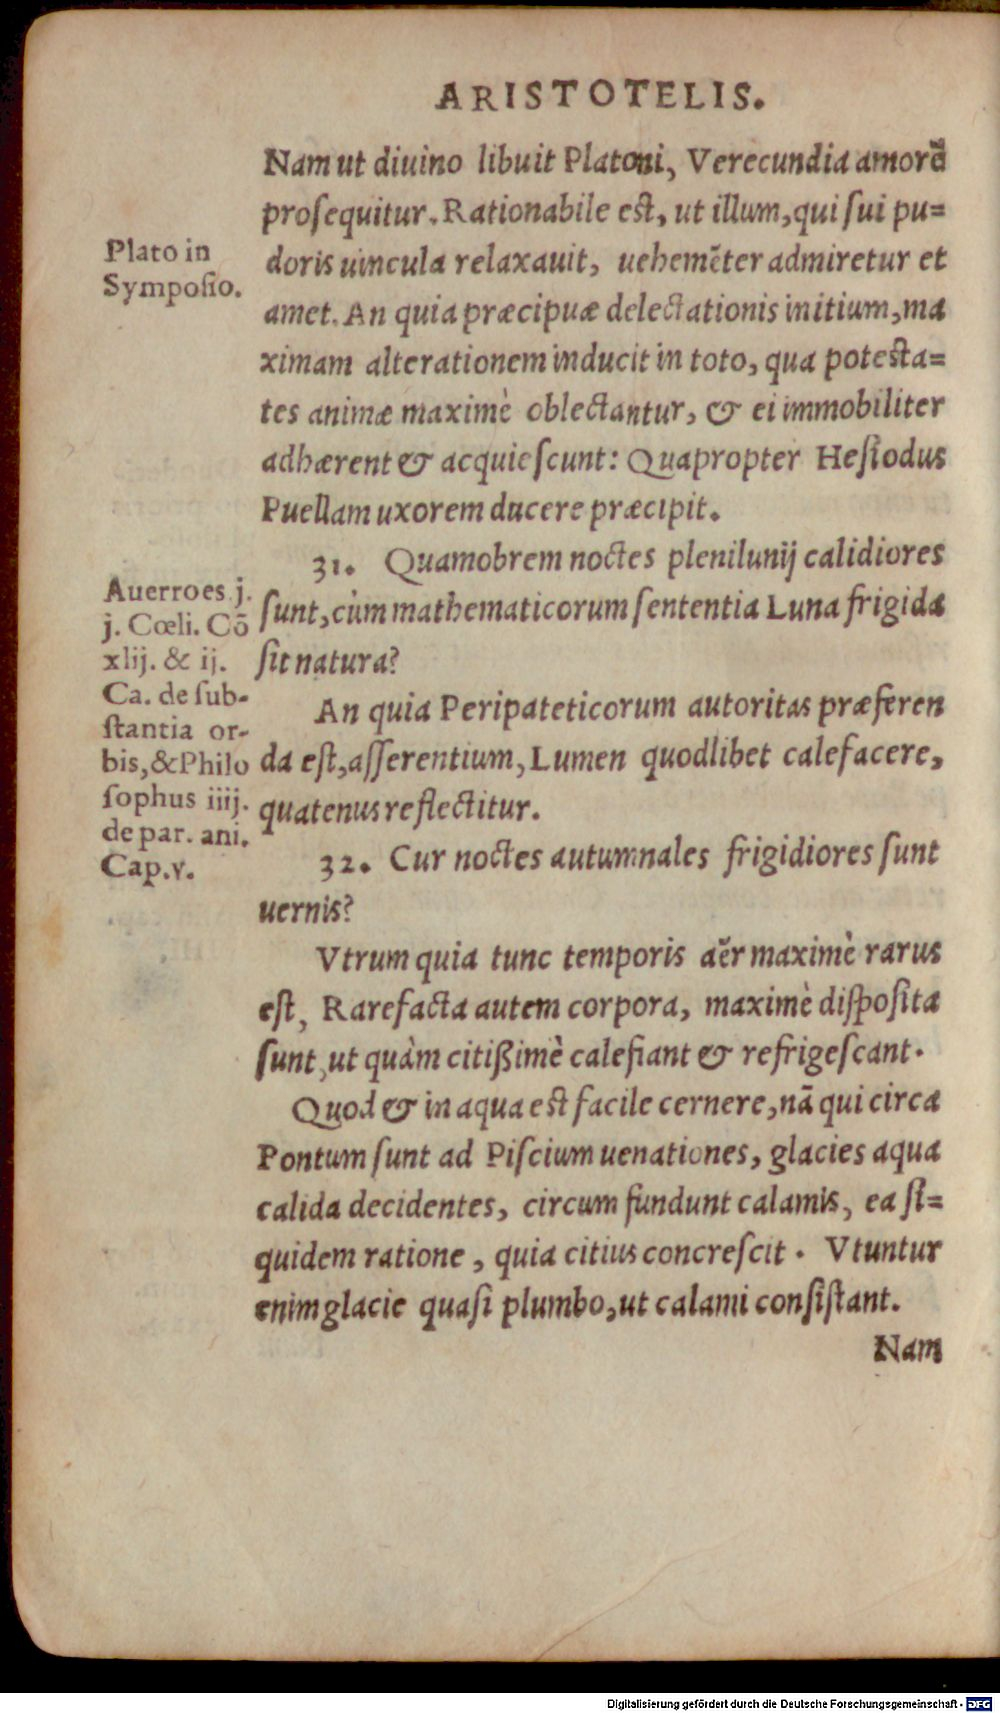 ARISTOTELIS.
Nam ut diuino libuit Platoni, Verecundia amorē
prosequitur. Rationabile est, ut illum, qui sui pu=
doris uincula relaxauit, uehemēter admiretur et
amet. An quia præcipuæ delectationis initium, ma
ximam alterationem inducit in toto, qua potesta=
tes animæ maximè oblectantur, & ei immobiliter
adhærent & acquiescunt: Quapropter Hesiodus
Puellam uxorem ducere præcipit.
31. Quamobrem noctes plenilunij calidiores
sunt, cùm mathematicorum sententia Luna frigida
sit natura?
An quia Peripateticorum autoritas præferen
da est, asserentium, Lumen quodlibet calefacere,
quatenus reflectitur.
32. Cur noctes autumnales frigidiores sunt
uernis?
Vtrum quia tunc temporis aër maximè rarus
est, Rarefacta autem corpora, maximè disposita
sunt, ut quàm citißimè calefiant & refrigescant.
Quod & in aqua est facile cernere, nā qui circa
Pontum sunt ad Piscium uenationes, glacies aqua
calida decidentes, circum fundunt calamis, ea si=
quidem ratione, quia citius concrescit. Vtuntur
enim glacie quasi plumbo, ut calami consistant.
Nam
Plato in
Symposio.
Auerroes j.
j. Cœli. Cō
xlij. & ij.
Ca. de sub-
stantia or-
bis, & Philo
sophus iiij.
de par. ani.
Cap. v.
Digitalisierung gefördert durch die Deutsche Forschungsgemeinschaft - DFG